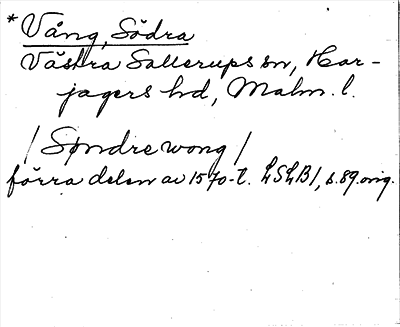 * Vång, Södra
Västra Sallerups sn, Har-
jagers hd, Malm. l.
/ Søndre wong /
förra delen av 1570-t. LSLB1, s. 89. orig.